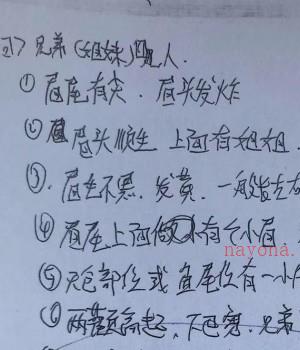 27 兄弟(姐妹)贵人.
① 眉尾有尖.眉头发炸
② 眉头顺生 上面有姐姐.
③.眉毛不黑.发黄.一般
④ 眉尾上面 有个小眉
⑤ 部位或鱼尾位有一小
⑥ 两颧高起,下巴宽.兄弟
nayona.